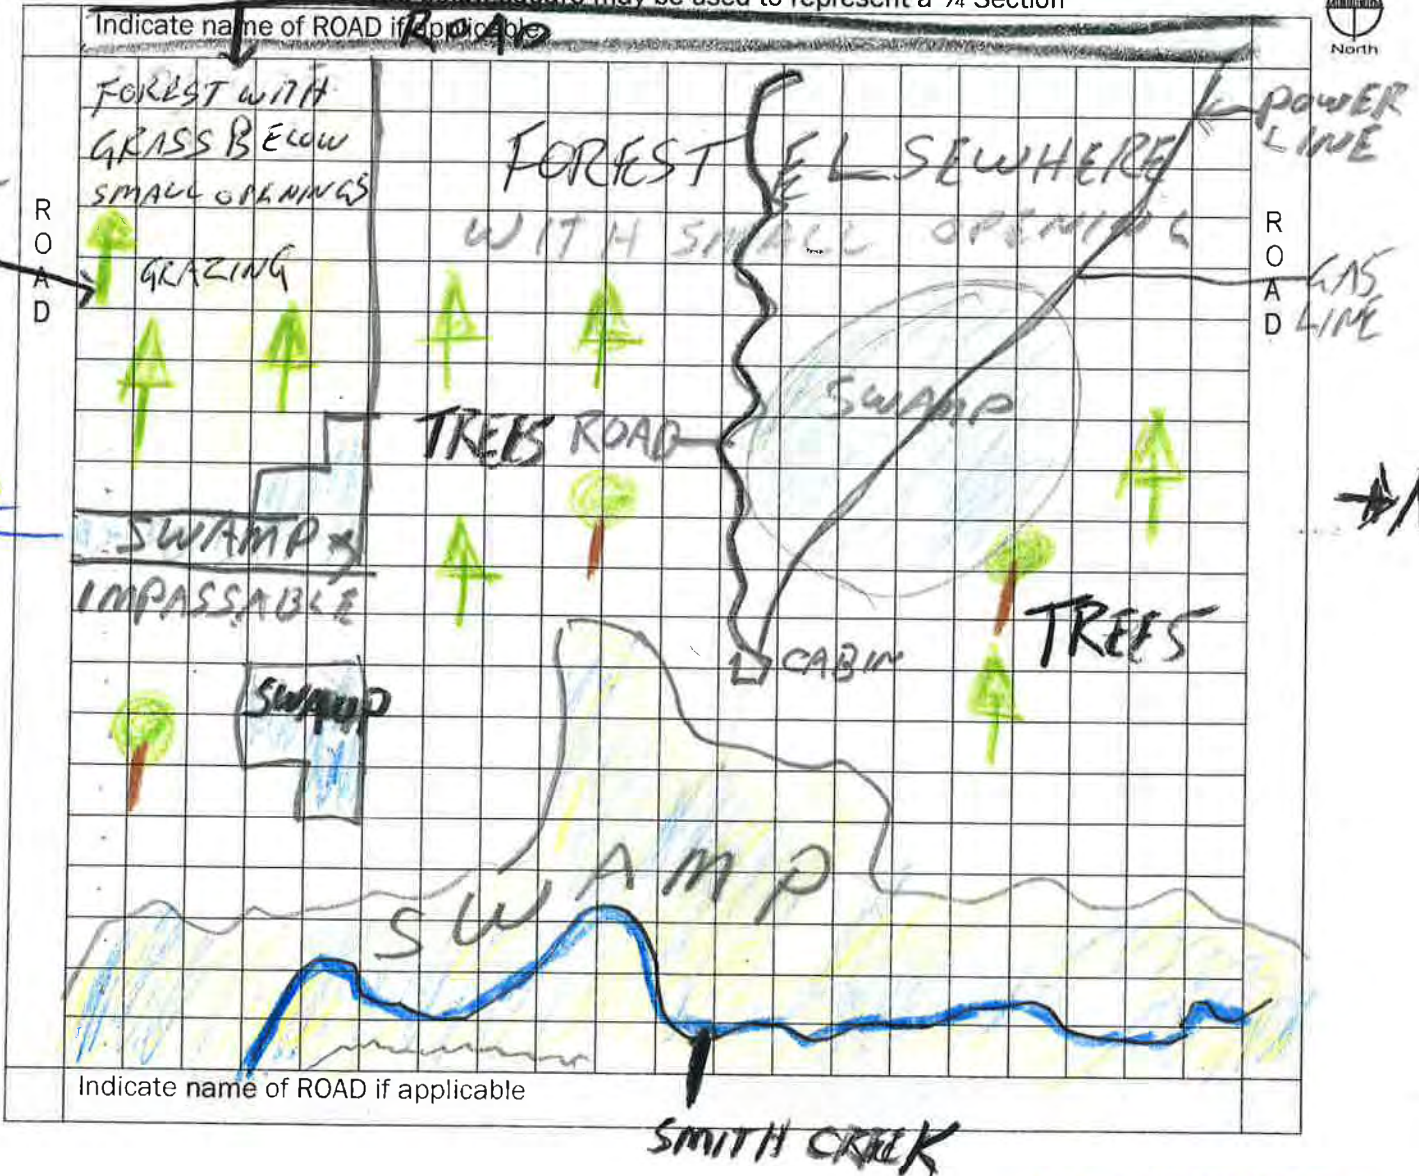 square may be used to represent a ¼ Section
Indicate name of ROAD if applicable
ROAD
North
FOREST WITH
GRASS BELOW
SMALL OPENINGS
GRAZING
FOREST ELSEWHERE
WITH SMALL OPENING
POWER
LINE
ROAD
ROAD
GAS
LINE
SWAMP
TREES ROAD
SWAMP
IMPASSABLE
TREES
CABIN
SWAMP
SWAMP
Indicate name of ROAD if applicable
SMITH CREEK